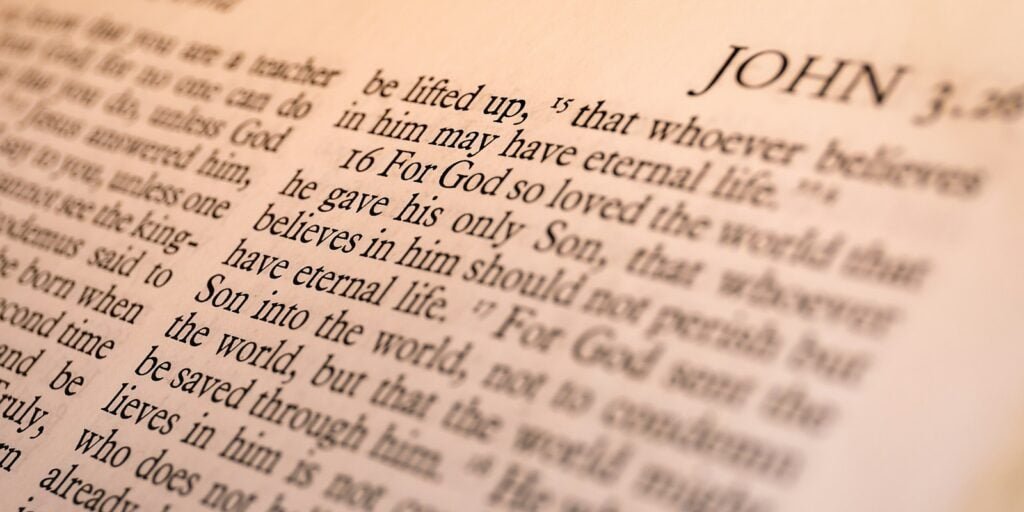 JOHN 3.26
know that you are a teacher
God, for no one can do
that you do, unless God
Jesus answered him,
say to you, unless one
cannot see the king-
odemus said to
be born when
econd time
and be
ruly,
rn
be lifted up, 15 that whoever believes
in him may have eternal life.
16 For God so loved the world that
he gave his only Son, that whoever
believes in him should not perish but
have eternal life. 17 For God sent the
Son into the world, not to condemn
the world, but that the world might
be saved through him. 18 He
lieves in him is not
who does not
already